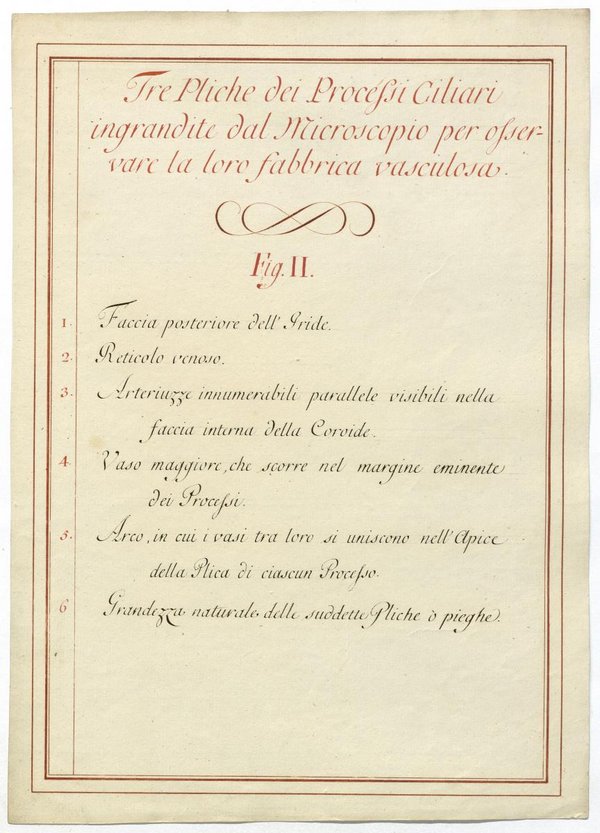 Tre Pliche dei Processi Ciliari
ingrandite dal Microscopio per osser-
vare la loro fabbrica vasculosa.
Fig. II.
1. Faccia posteriore dell' Iride.
2. Reticolo venoso.
3. Arteriuzze innumerabili parallele visibili nella
faccia interna della Coroide.
4. Vaso maggiore, che scorre nel margine eminente
dei Processi.
5. Arco, in cui i vasi tra loro si uniscono nell' Apice
della Plica di ciascun Processo.
6 Grandezza naturale delle suddette Pliche ò pieghe.